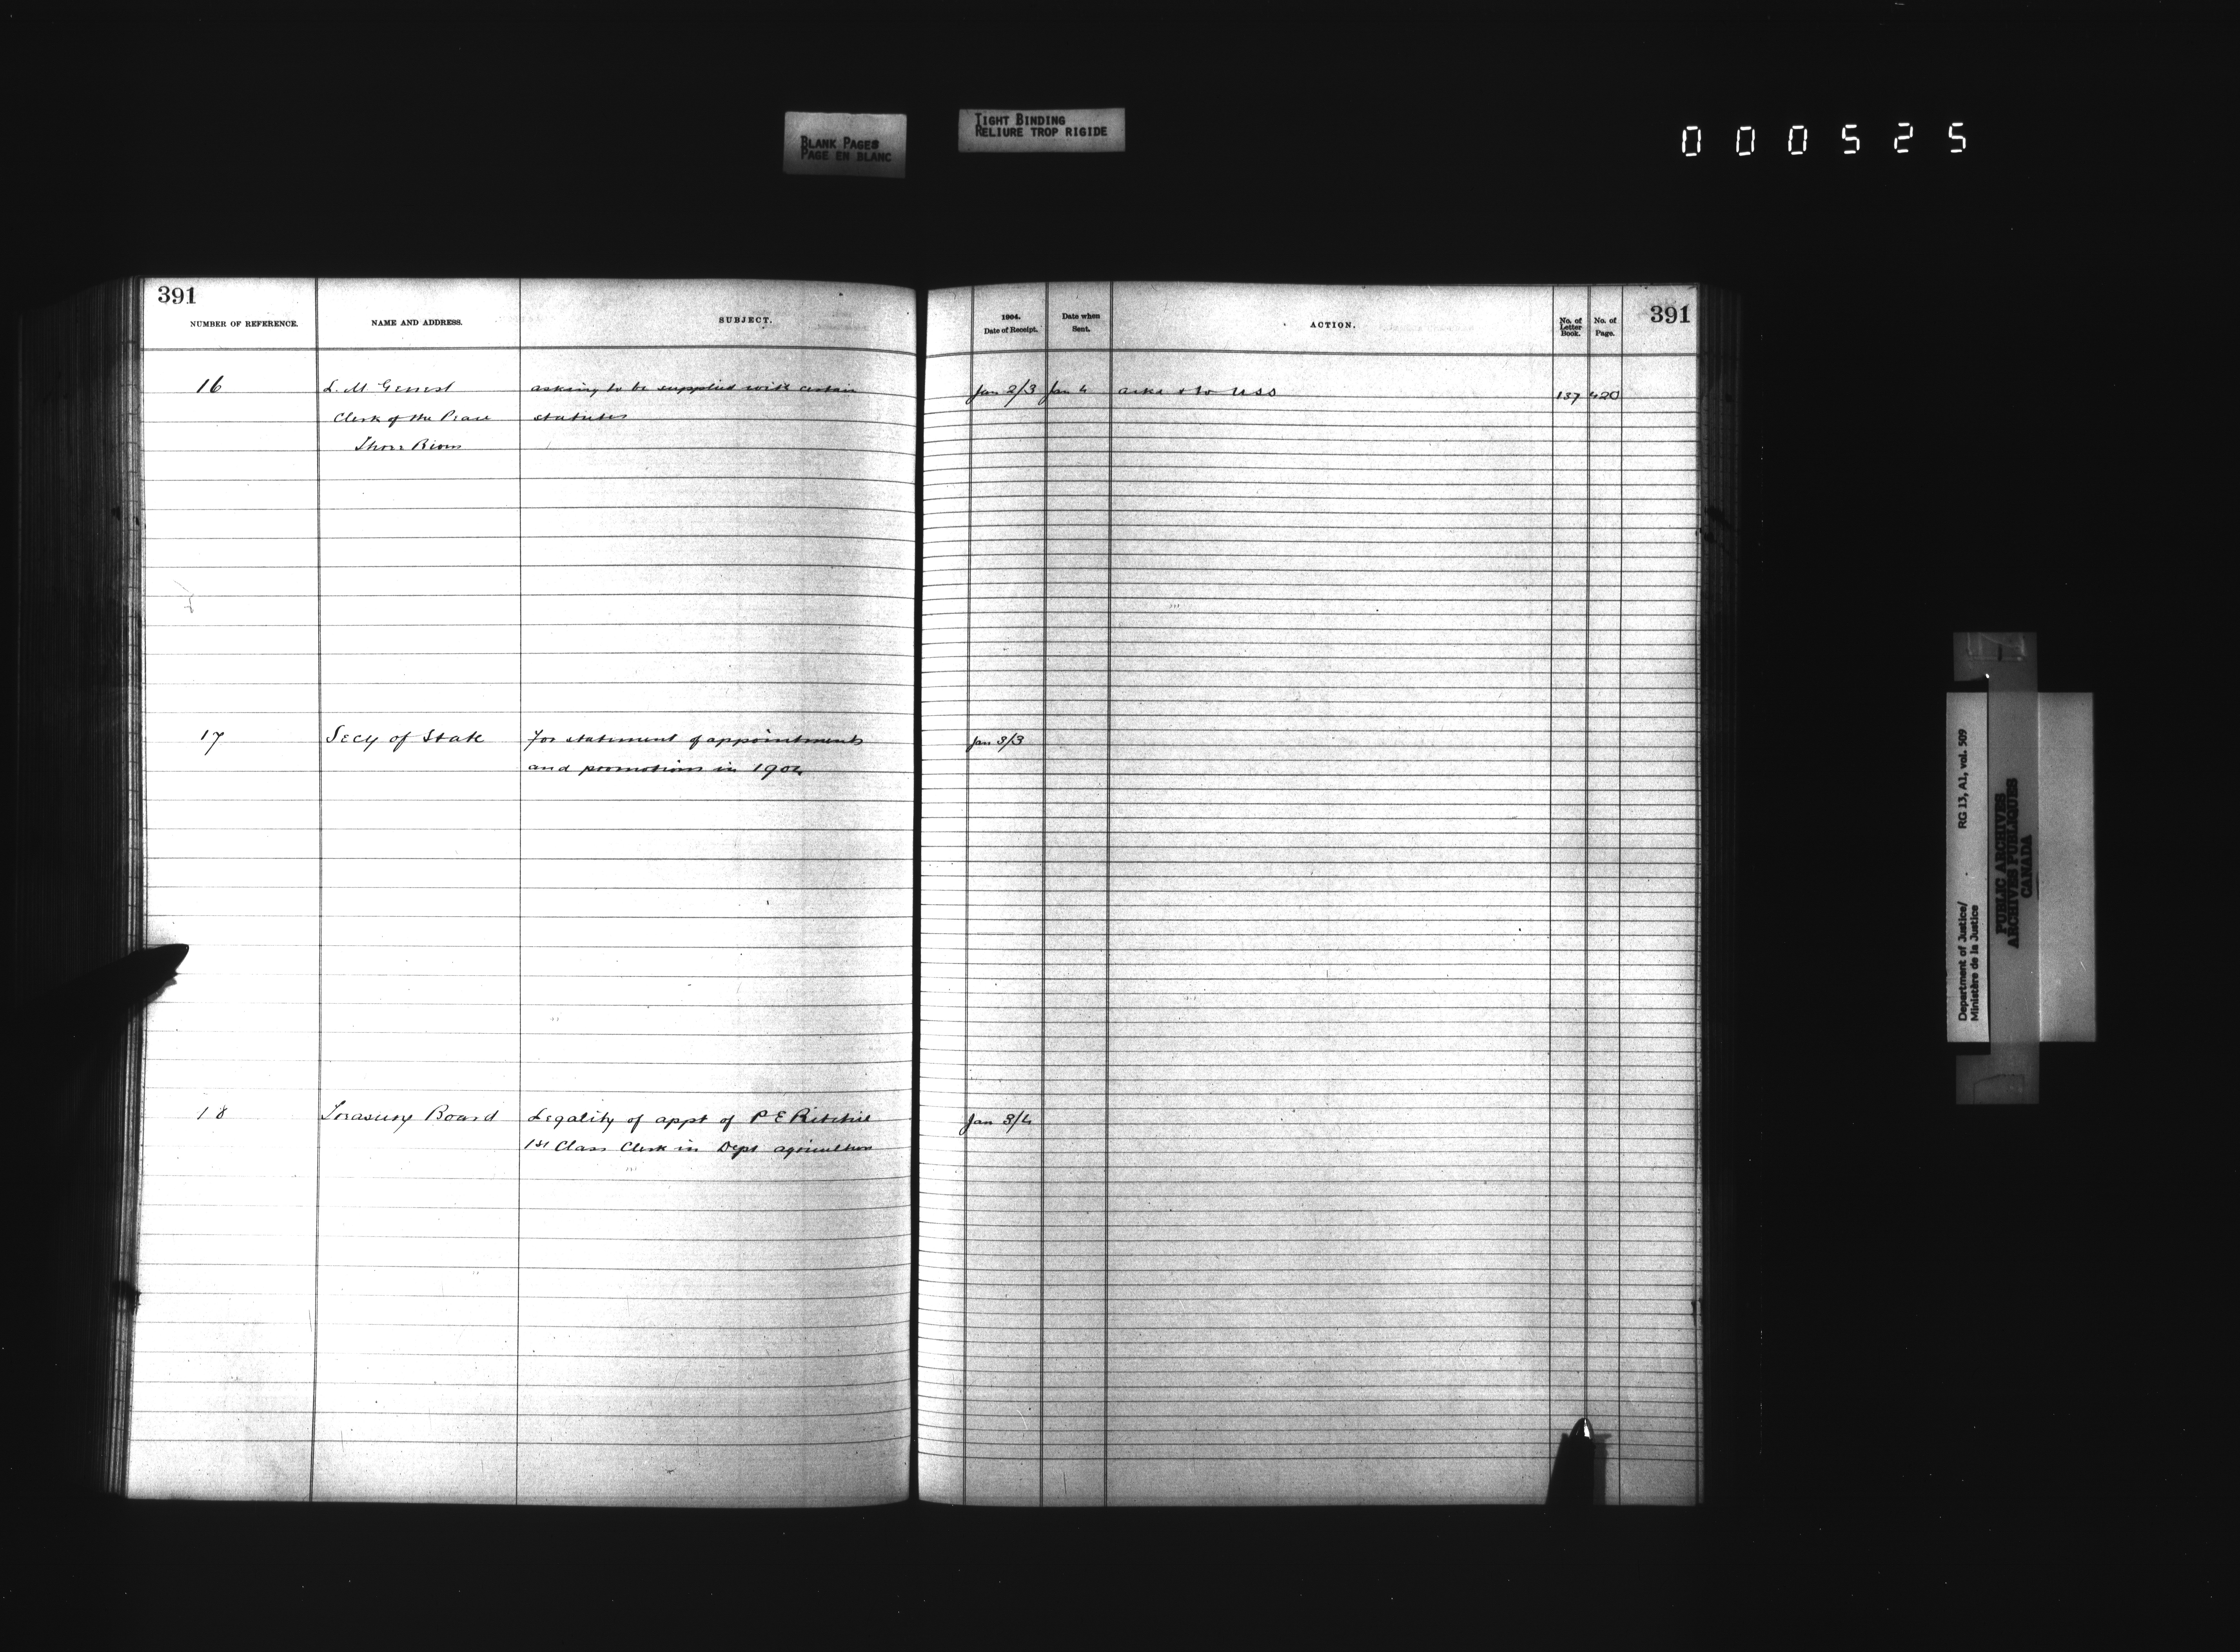 BLANK PAGES
PAGE EN BLANC
TIGHT BINDING
RELIURE TROP RIGIDE
000525
391
NUMBER OF REFERENCE.
NAME AND ADDRESS.
SUBJECT.
1904.
Date of Receipt.
Date when
Sent.
ACTION.
No. of
Letter
Book.
No. of
Page.
391
16
L. M Genest
asking to be supplied with certain
Jan 2/3
Jan 4
acks & to USS
137
420
Clerk of the Peace
statutes
Three Rivers
17
Secy of State
For statement of appointments
Jan 3/3
and promotions in 1904
18
Treasury Board
Legality of appt of P E Ritchie
Jan 3/4
1st Class Clerk in Dept agriculture
Department of Justice/
Ministère de la Justice
RG 13, A1, vol. 509
PUBLIC ARCHIVES
ARCHIVES PUBLIQUES
CANADA